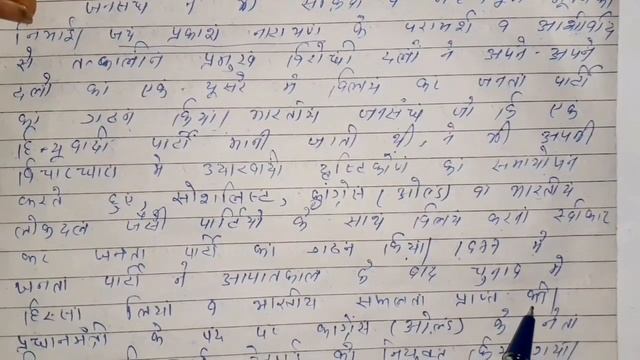 जनसंघ ने
निभाई। जय प्रकाश नारायण के परामर्श व आशीर्वाद
से तत्कालीन प्रमुख विरोधी दलों ने अपने-अपने
दलों का एक दूसरे में विलय कर जनता पार्टी
का गठन किया। भारतीय जनसंघ जो कि एक
हिन्दूवादी पार्टी मानी जाती थी, ने भी अपनी
विचारधारा में उदारवादी दृष्टिकोण का समायोजन
करते हुए, सोशलिस्ट, कांग्रेस (ओल्ड) व भारतीय
लोकदल जैसी पार्टियों के साथ विलय करना स्वीकार
कर जनता पार्टी का गठन किया। में
जनता पार्टी ने आपातकाल के बाद चुनाव में
हिस्सा लिया व भारतीय सफलता प्राप्त की।
प्रधानमंत्री के पद पर कांग्रेस (ओल्ड) के नेता
को नियुक्त किया गया।